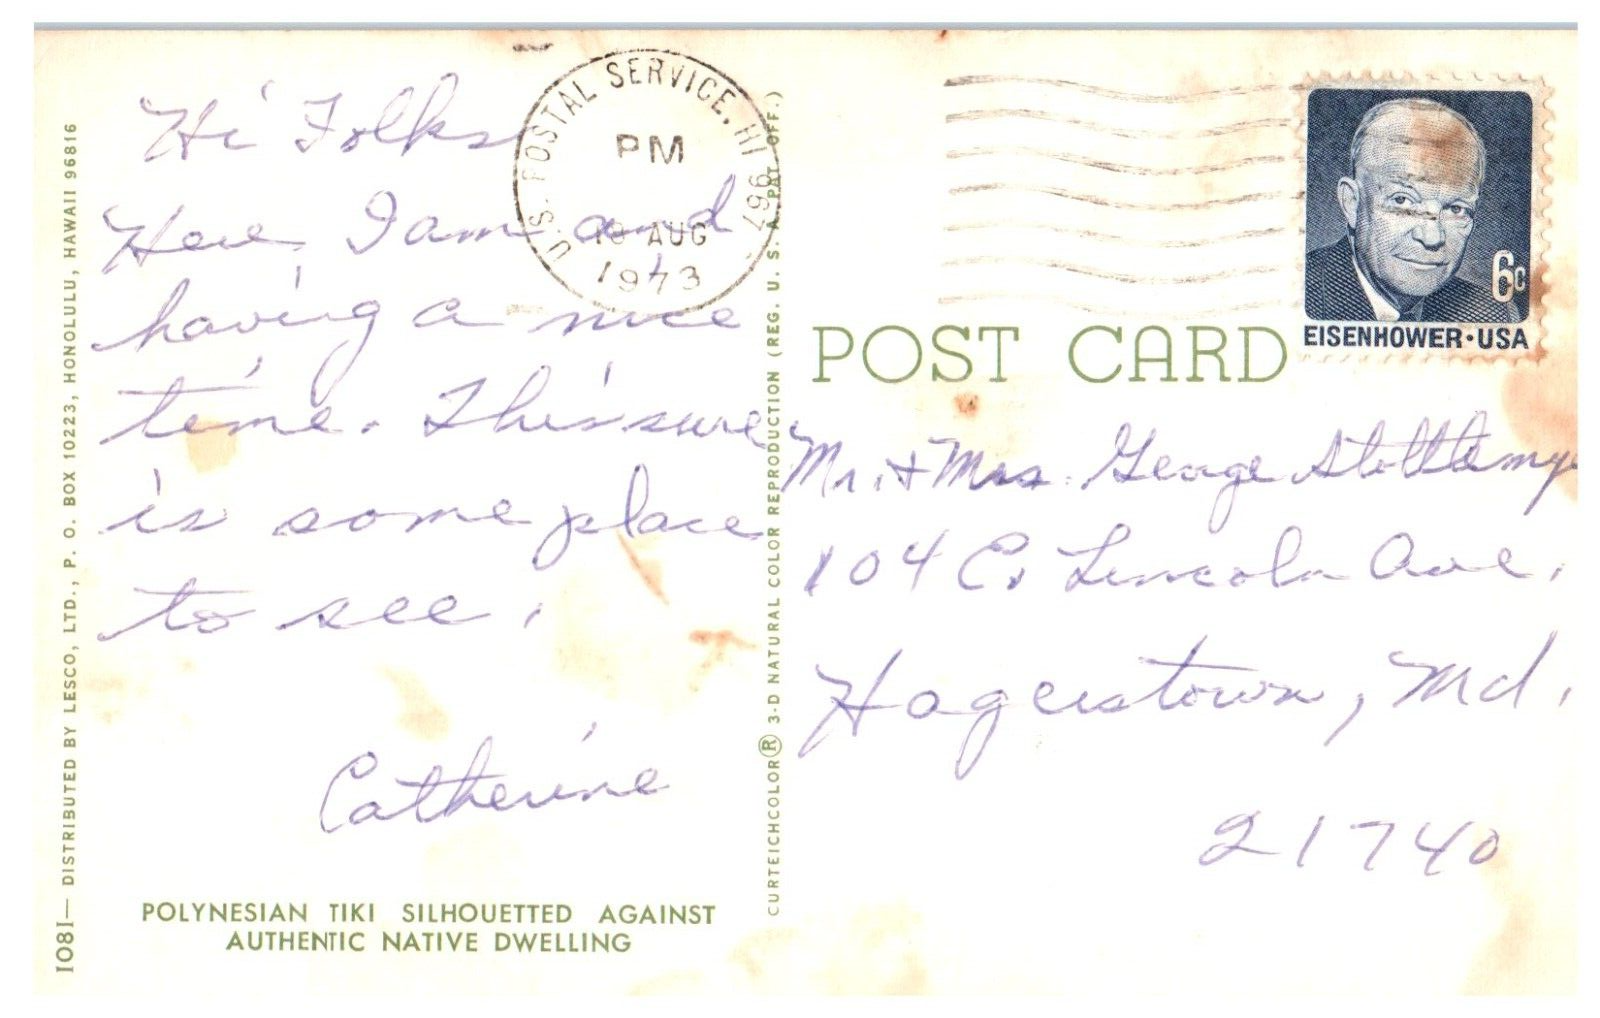 Hi Folks
Here I am and
having a nice
time. This sure
is some place
to see.
Catherine
POLYNESIAN TIKI SILHOUETTED AGAINST
AUTHENTIC NATIVE DWELLING
1081— DISTRIBUTED BY LESCO, LTD., P. O. BOX 10223, HONOLULU, HAWAII 96816
CURTEICHCOLOR® 3-D NATURAL COLOR REPRODUCTION (REG. U. S. A. PAT. OFF.)
U.S. POSTAL SERVICE, HI 967
PM
AUG
1973
6c
EISENHOWER·USA
POST CARD
Mr. + Mrs. George Stottlemye
104 E. Lincoln Ave.
Hagerstown, Md.
21740